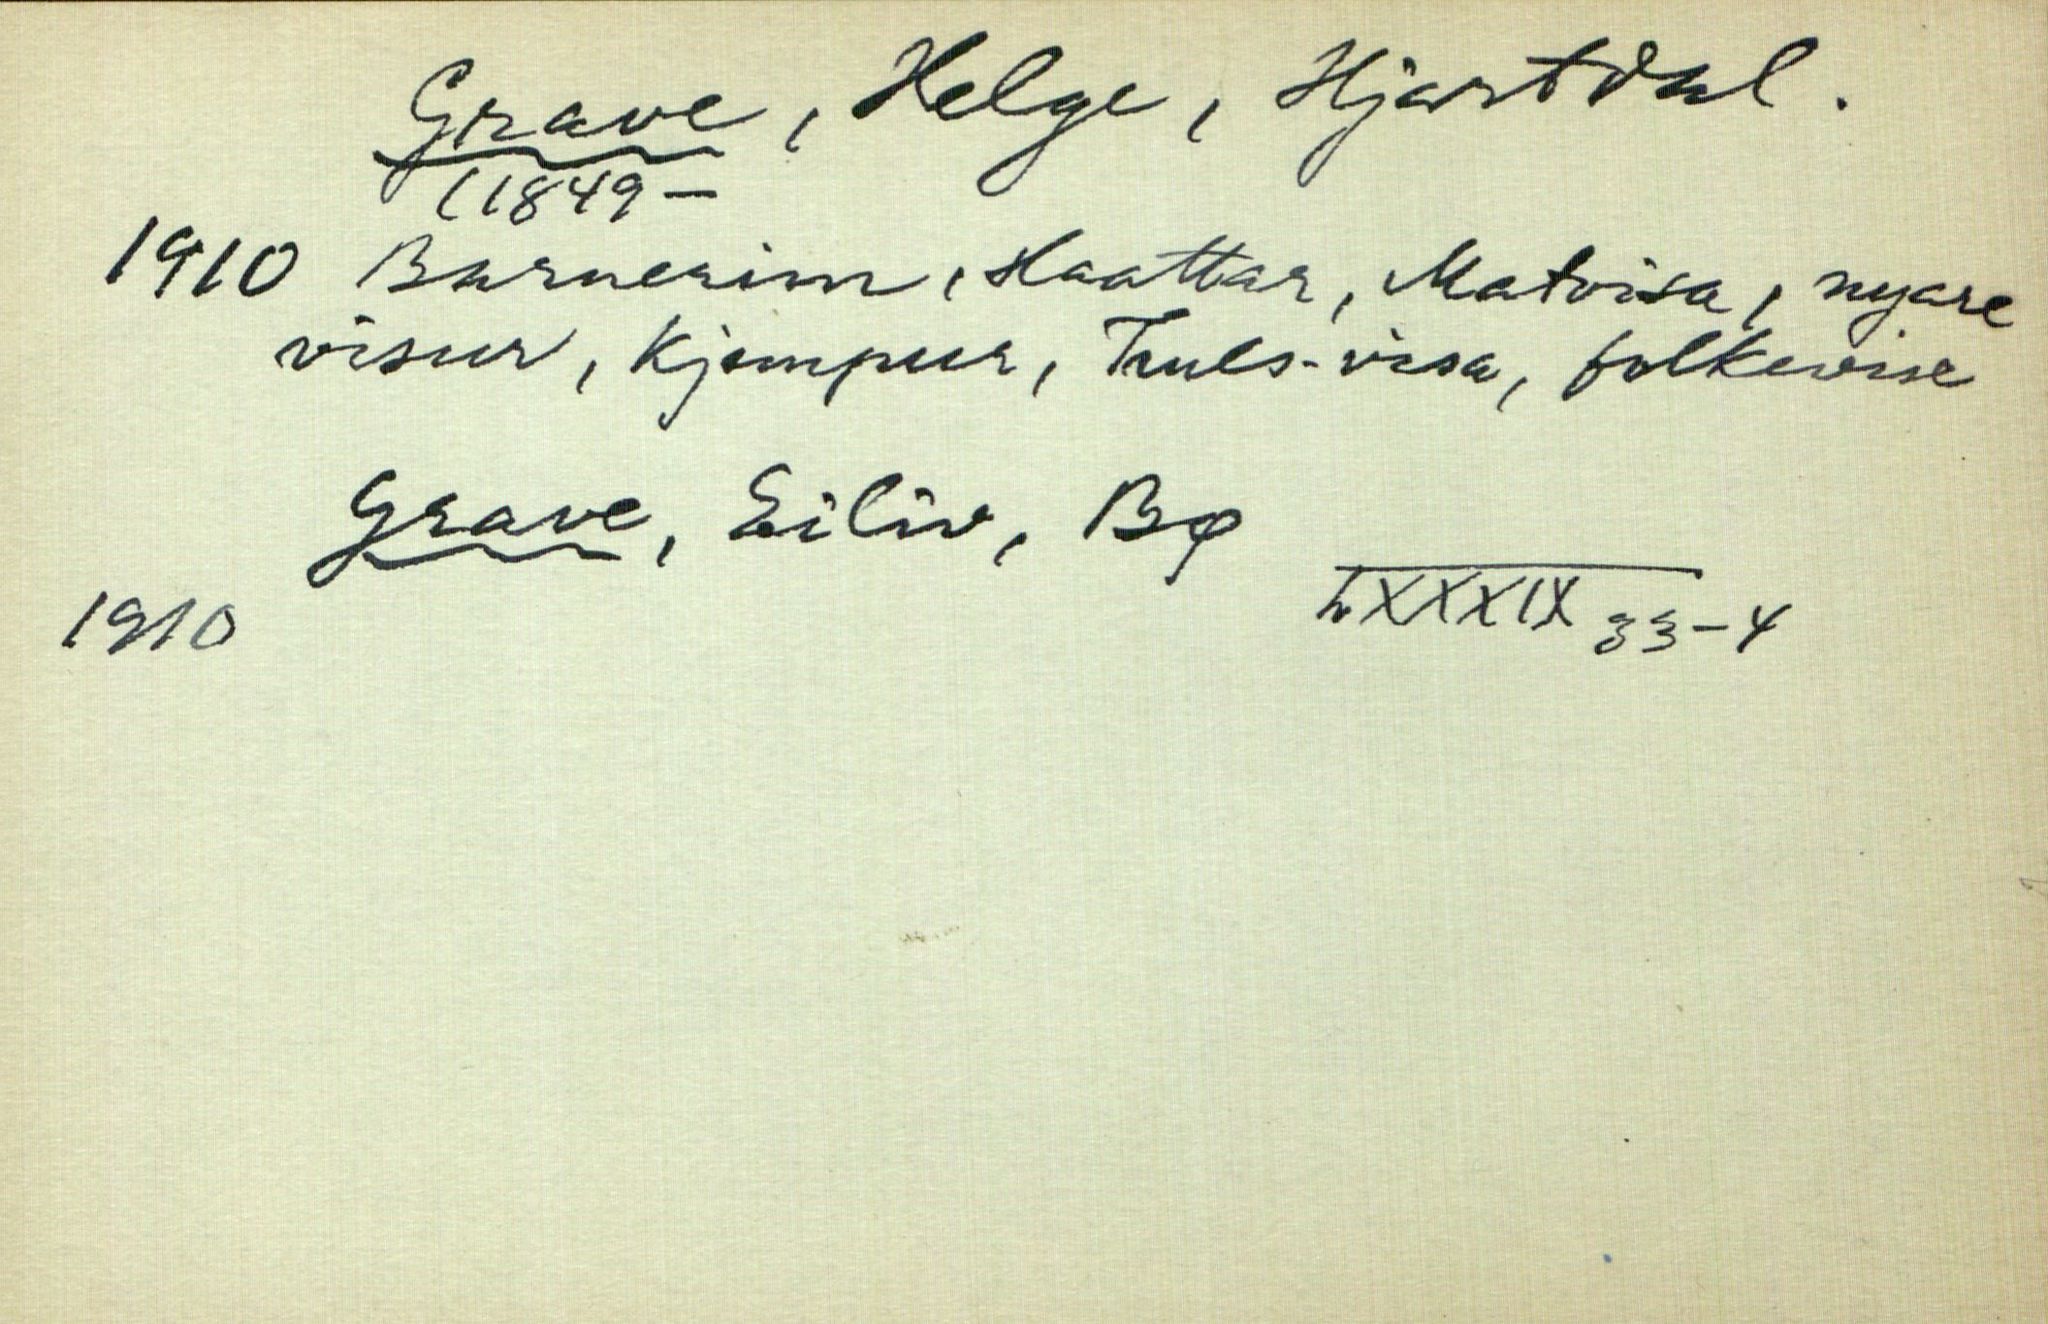 Grave, Helge, Hjartdal.
(1849-
1910 Barnerim, Haattar, Matvisa, nyare
visur, Kjempur, Truls-visa, folkevise
Grave, Eiliv, Bø
LXXXIX 33-4
1910